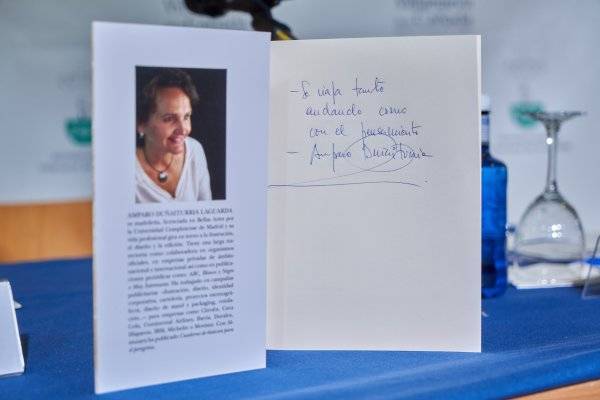 AMPARO DUÑAITURRIA LAGUARDA
es madrileña, licenciada en Bellas Artes por
la Universidad Complutense de Madrid y su
vida profesional gira en torno a la ilustración,
el diseño y la edición. Tiene una larga tra-
yectoria como colaboradora en organismos
oficiales, en empresas privadas de ámbito
nacional e internacional así como en publica-
ciones periódicas como: ABC, Blanco y Negro
o Muy Interesante. Ha trabajado en campañas
publicitarias -ilustración, diseño, identidad
corporativa, cartelería, proyectos museográ-
ficos, diseño de stand y packaging, rotula-
ción...- para empresas como Citroën, Coca
Cola, Continental Airlines, Iberia, Duralex,
IBM, Michelin o Montani. Con M-
ha publicado Cuaderno de historia para
el peregrino.
- Se viaja tanto
andando como
con el pensamiento
- Amparo Duñaiturria